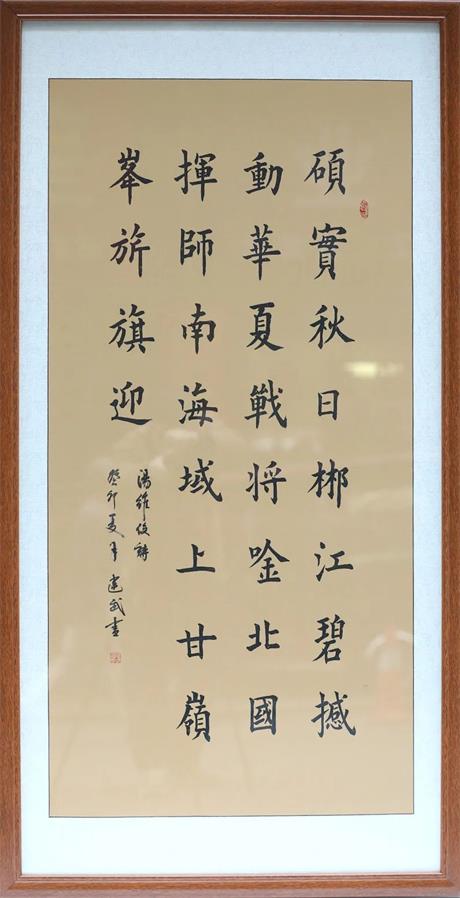 碩實秋日郴江碧撼
動華夏戰将唫北國
揮師南海域上甘嶺
峯旂旗迎
湯維俊詩
癸卯夏月建武書